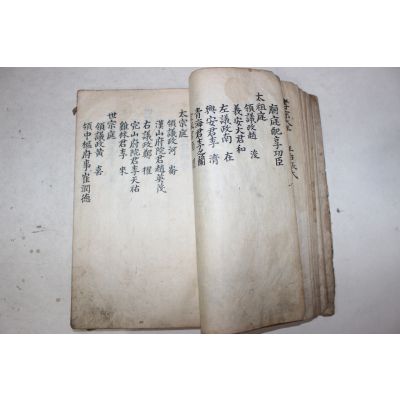 廟庭配享功臣
太祖庭
領議政趙浚
義安大君和
左議政南在
興安君李濟
青海君李之蘭
太宗庭
領議政河崙
漢山府院君趙英茂
右議政鄭擢
完山府院君李天祐
雞林君李來
世宗庭
領議政黃喜
領中樞府事崔潤德